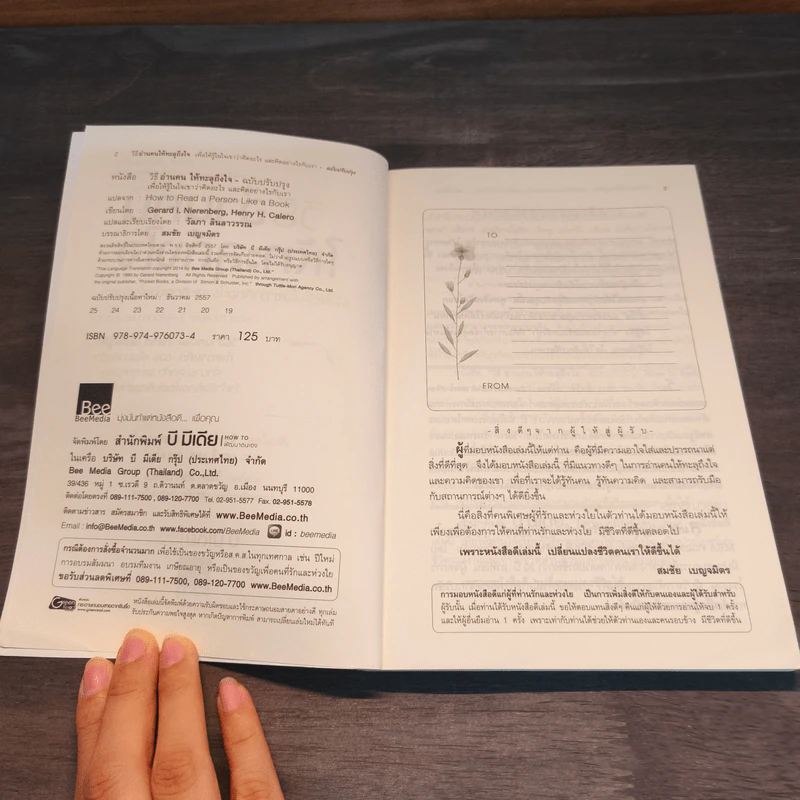 2 วิธีอ่านคนให้ทะลุถึงใจ เพื่อให้รู้ในใจเขาว่าคิดอะไร และคิดอย่างไรกับเรา - ฉบับปรับปรุง
หนังสือ วิธีอ่านคน ให้ทะลุถึงใจ - ฉบับปรับปรุง
เพื่อให้รู้ในใจเขาว่าคิดอะไร และคิดอย่างไรกับเรา
แปลจาก How to Read a Person Like a Book
เขียนโดย Gerard I. Nierenberg, Henry H. Calero
แปลและเรียบเรียงโดย วัลภา ลินลาวรรณ
บรรณาธิการโดย สมชัย เบญจมิตร
สงวนลิขสิทธิ์ในประเทศไทยตาม พ.ร.บ. ลิขสิทธิ์ 2557 โดย บริษัท บี มีเดีย กรุ๊ป (ประเทศไทย) จำกัด
"Thai Language Translation copyright 2014 by Bee Media Group (Thailand) Co., Ltd."
Copyright © 1990 by Gerard Nierenberg All Rights Reserved Published by arrangement with
the original publisher, "Pocket Books, a Division of Simon & Schuster, Inc." through Tuttle-Mori Agency Co., Ltd.
ฉบับปรับปรุงเนื้อหาใหม่ : ธันวาคม 2557
25 24 23 22 21 20 19
ISBN 978-974-976073-4 ราคา 125 บาท
Bee
BeeMedia มุ่งมั่นทำแต่หนังสือดี... เพื่อคุณ
จัดพิมพ์โดย สำนักพิมพ์ บี มีเดีย HOW TO พัฒนาตนเอง
ในเครือ บริษัท บี มีเดีย กรุ๊ป (ประเทศไทย) จำกัด
Bee Media Group (Thailand) Co.,Ltd.
39/436 หมู่ 1 ซ.เรวดี 9 ถ.ติวานนท์ ต.ตลาดขวัญ อ.เมือง นนทบุรี 11000
ติดต่อโดยตรงที่ 089-111-7500, 089-120-7700 Tel. 02-951-5577 Fax. 02-951-5578
ติดตามข่าวสาร สมัครสมาชิก และรับสิทธิพิเศษได้ที่ www.BeeMedia.co.th
Email : info@BeeMedia.co.th www.facebook.com/BeeMedia LINE id : beemedia
กรณีต้องการสั่งซื้อจำนวนมาก เพื่อใช้เป็นของขวัญหรือส.ค.ส.ในทุกเทศกาล เช่น ปีใหม่
การอบรมสัมมนา อบรมทีมงาน เกษียณอายุ หรือเป็นของขวัญเพื่อคนที่รักและห่วงใย
ขอรับส่วนลดพิเศษที่ 089-111-7500, 089-120-7700 www.BeeMedia.co.th
หนังสือเล่มนี้จัดพิมพ์ด้วยความรับผิดชอบและใช้กระดาษถนอมสายตาอย่างดี ทุกเล่ม
รับประกันความพอใจสูงสุด หากเกิดปัญหาการพิมพ์ สามารถเปลี่ยนเล่มใหม่ได้ทันที
TO
FROM
- สิ่งดีๆจากผู้ให้สู่ผู้รับ -
ผู้ที่มอบหนังสือเล่มนี้ให้แด่ท่าน คือผู้ที่มีความเอาใจใส่และปรารถนาแต่
สิ่งที่ดีที่สุด จึงได้มอบหนังสือเล่มนี้ ที่มีแนวทางดีๆ ในการอ่านคนให้ทะลุถึงใจ
และความคิดของเขา เพื่อที่เราจะได้รู้ทันคน รู้ทันความคิด และสามารถรับมือ
กับสถานการณ์ต่างๆ ได้ดียิ่งขึ้น
นี่คือสิ่งที่คนพิเศษผู้ที่รักและห่วงใยในตัวท่านได้มอบหนังสือเล่มนี้ให้
เพียงเพื่อต้องการให้คนที่ท่านรักและห่วงใย มีชีวิตที่ดีขึ้นตลอดไป
เพราะหนังสือดีเล่มนี้ เปลี่ยนแปลงชีวิตคนเราให้ดีขึ้นได้
สมชัย เบญจมิตร
การมอบหนังสือดีแก่ผู้ที่ท่านรักและห่วงใย เป็นการเพิ่มสิ่งดีให้กับตนเองและผู้ได้รับสำหรับ
ผู้รับนั้น เมื่อท่านได้รับหนังสือดีเล่มนี้ ขอให้ตอบแทนสิ่งดีๆ คืนแก่ผู้ให้ด้วยการอ่านให้จบ 1 ครั้ง
และให้ผู้อื่นยืมอ่าน 1 ครั้ง เพราะเท่ากับท่านได้ช่วยให้ตัวท่านเองและคนรอบข้าง มีชีวิตที่ดีขึ้น